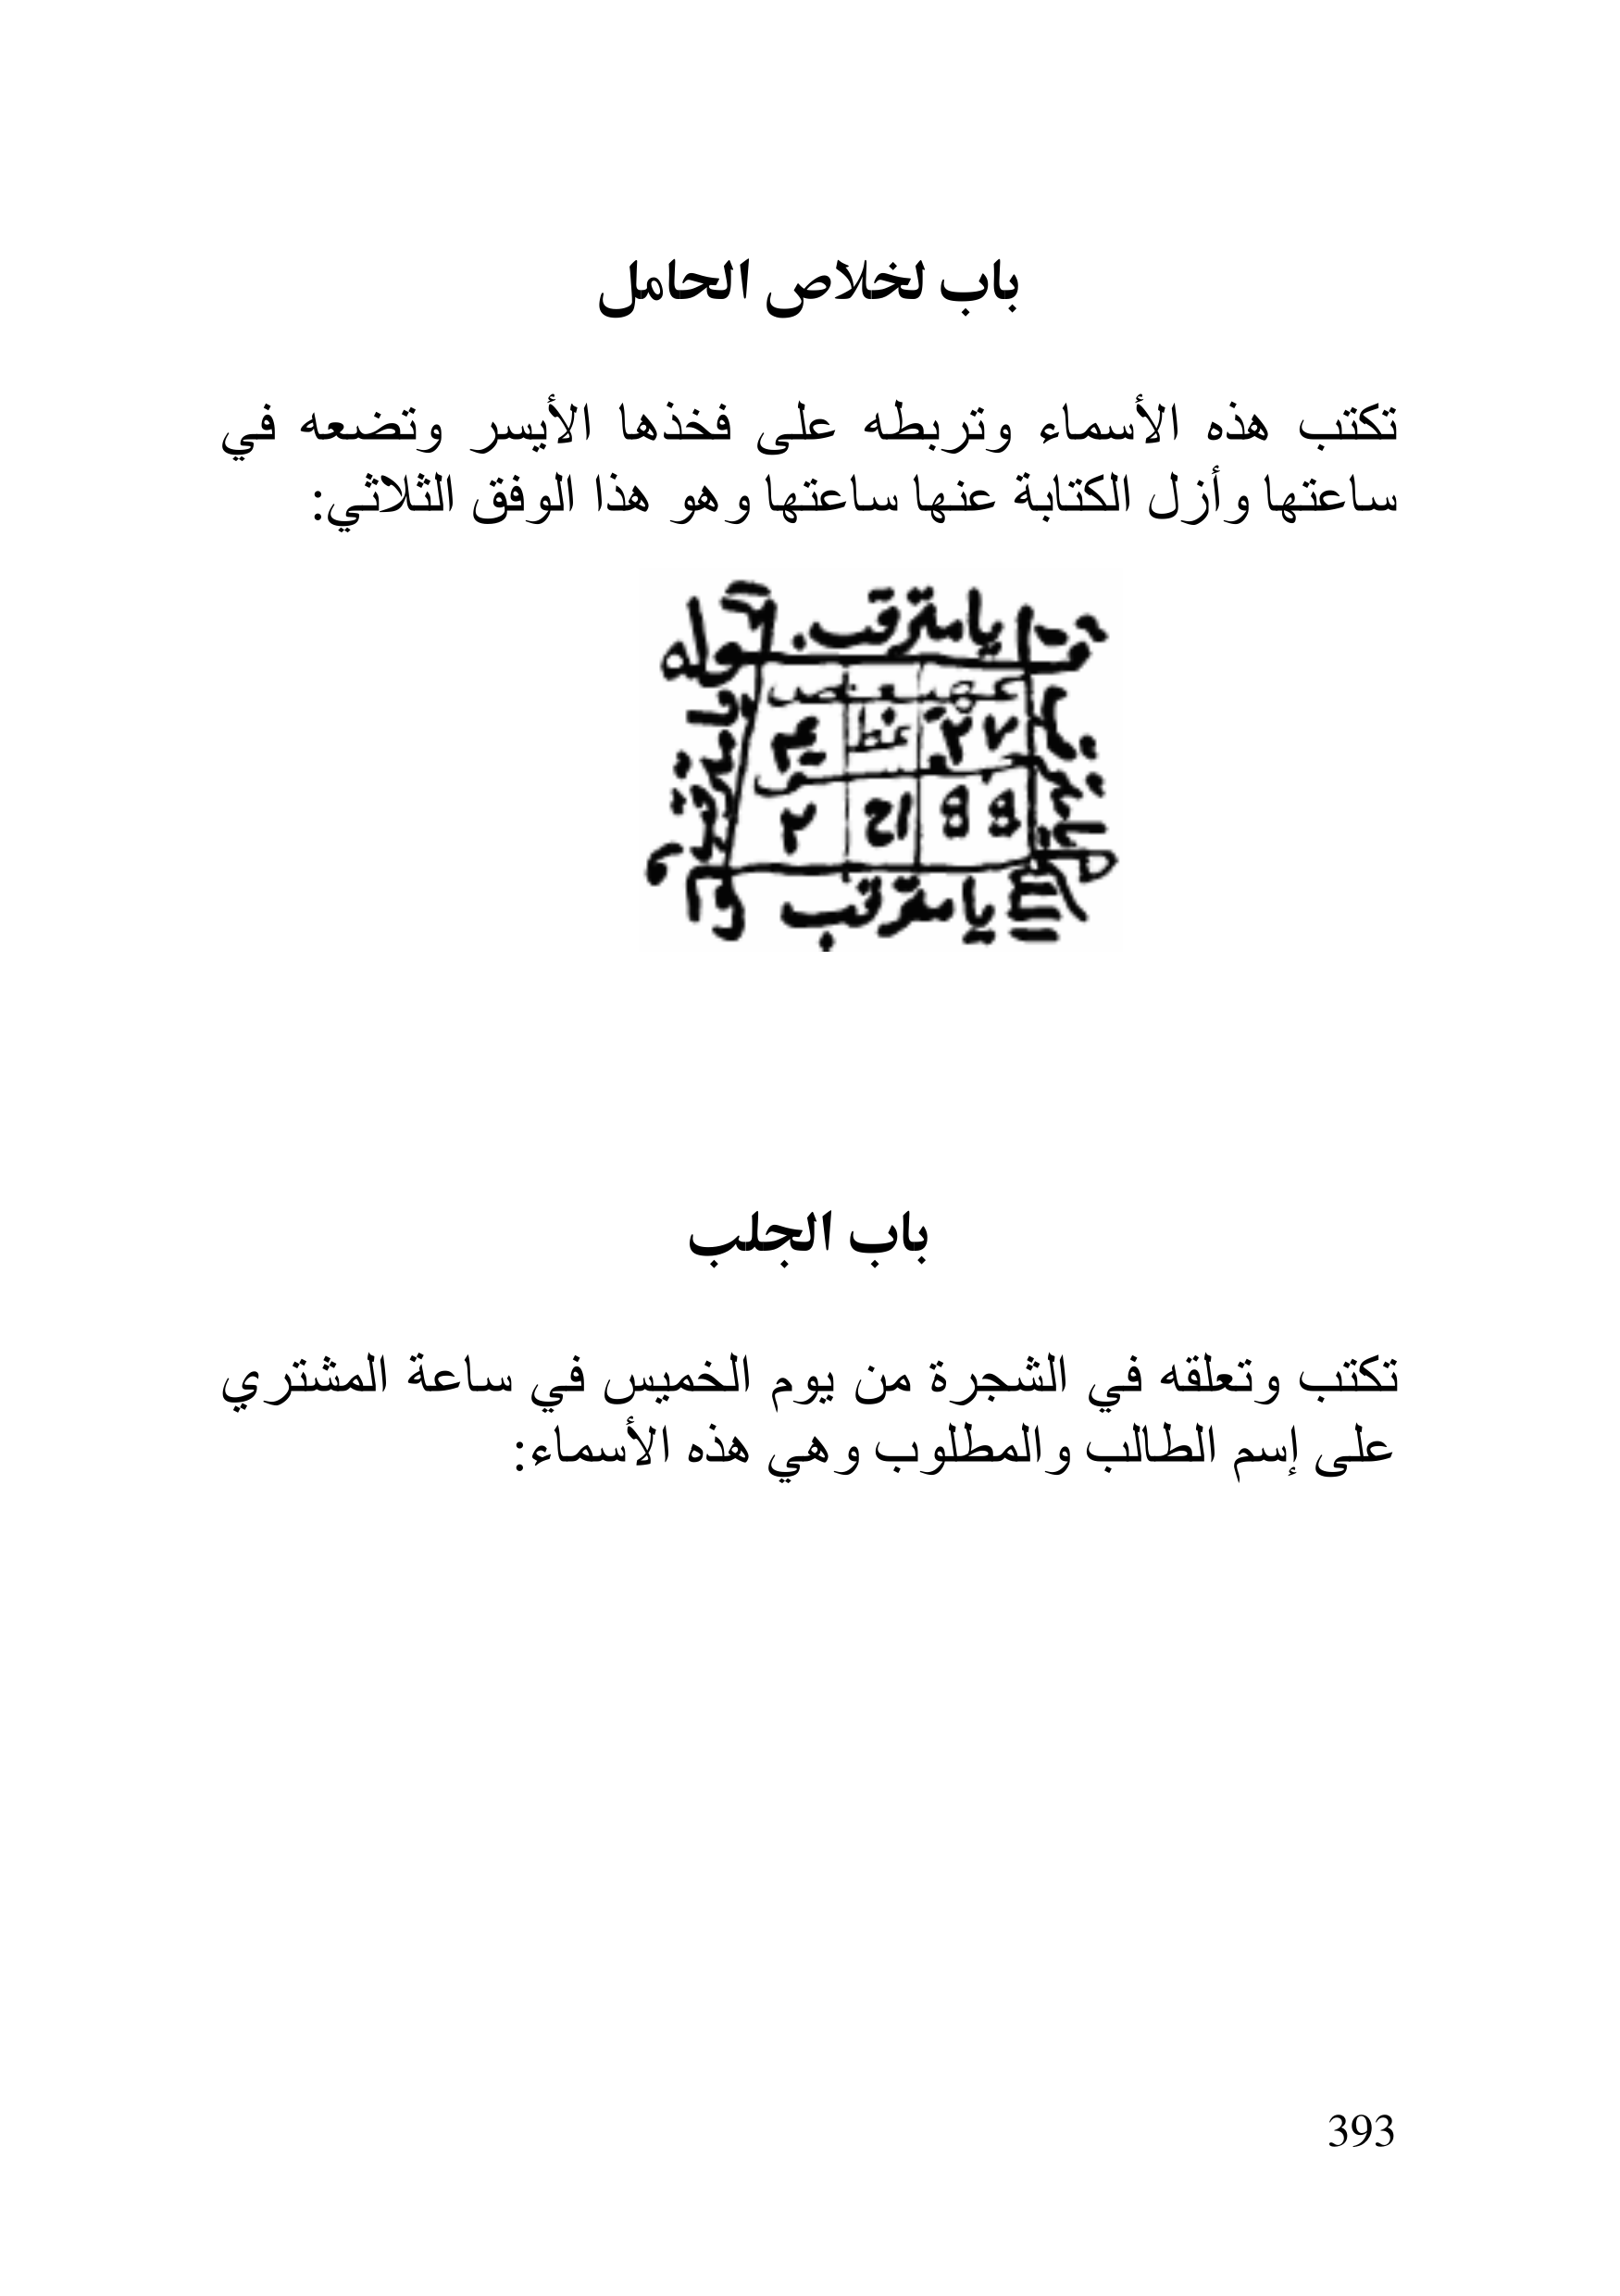 باب لخلاص الحامل
تكتب هذه الأسماء وتربطه على فخذها الأيسر وتضعه في
ساعتها وأزل الكتابة عنها ساعتها وهو هذا الوفق الثلاثي:
قوله
باب الجلب
تكتب وتعلقه في الشجرة من يوم الخميس في ساعة المشتري
على إسم الطالب والمطلوب وهي هذه الأسماء:
393